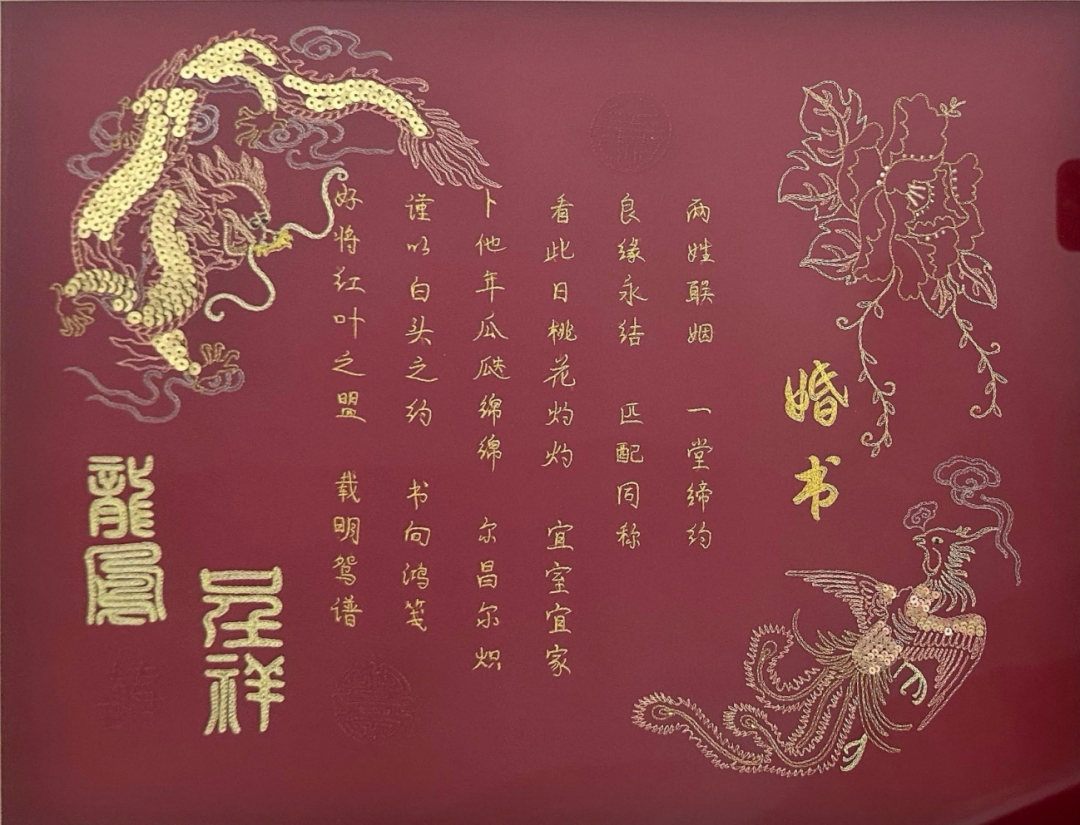 婚书
两姓联姻 一堂缔约
良缘永结 匹配同称
看此日桃花灼灼 宜室宜家
卜他年瓜瓞绵绵 尔昌尔炽
谨以白头之约 书向鸿笺
好将红叶之盟 载明鸳谱
呈祥
龍鳳